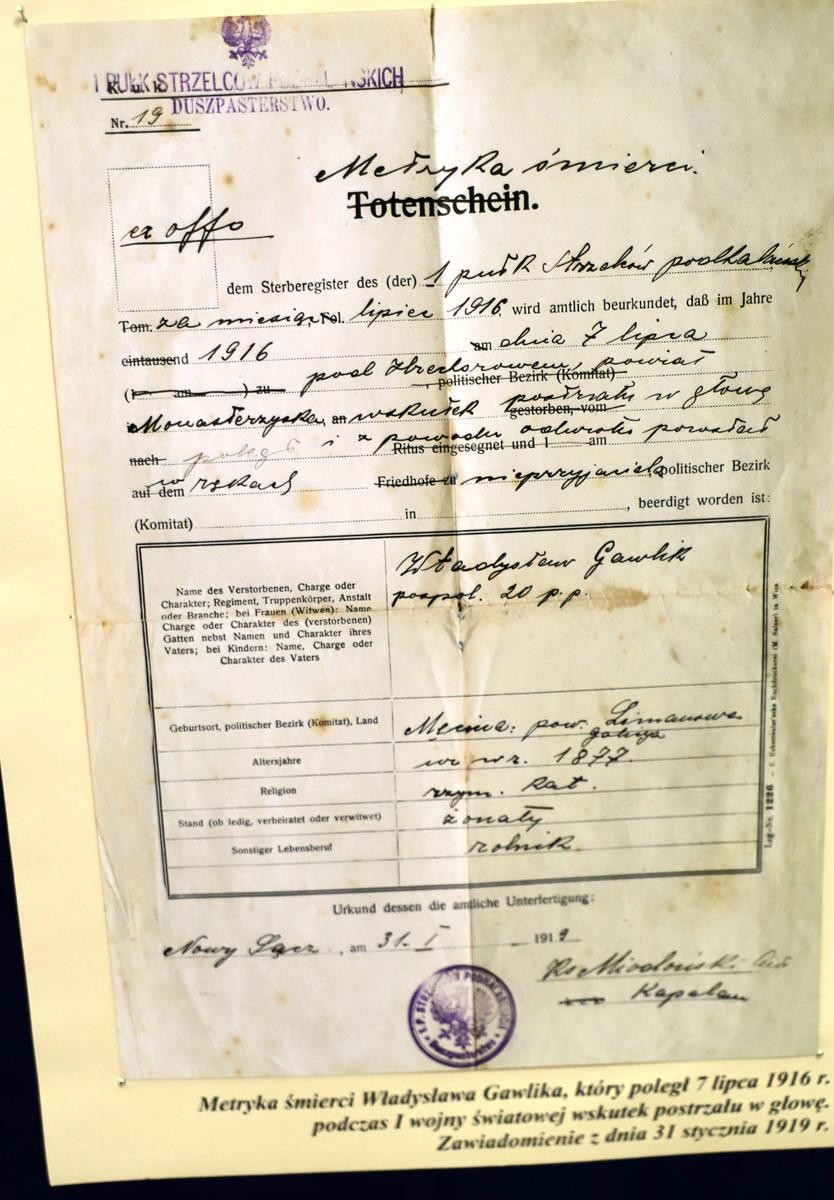 1 PUŁK STRZELCÓW PODHALAŃSKICH
K. u. k.
DUSZPASTERSTWO.
Nr. 19
Metryka śmierci.
Totenschein.
ex offo
dem Sterberegister des (der) 1 pułk Strzelców podhalański
Tom. za miesiąc Fol. lipiec 1916. wird amtlich beurkundet, daß im Jahre
eintausend 1916 am dnia 7 lipca
( am ) zu pod powiat
, politischer Bezirk (Komitat)
Monasterzyska, an wskutek postrzału w głowę
gestorben, vom
nach poległ i z powodu odwrotu pozostał
Ritus eingesegnet und 1 am
auf dem w rękach Friedhofe zu nieprzyjaciela, politischer Bezirk
(Komitat) in , beerdigt worden ist:
Name des Verstorbenen, Charge oder
Charakter; Regiment, Truppenkörper, Anstalt
oder Branche; bei Frauen (Witwen): Name
Charge oder Charakter des (verstorbenen)
Gatten nebst Namen und Charakter ihres
Vaters; bei Kindern: Name, Charge oder
Charakter des Vaters
Władysław Gawlik
pospol. 20 p.p.
Geburtsort, politischer Bezirk (Komitat), Land Męcina: pow. Limanowa
Altersjahre ur w r. 1877.
Religion rzym. kat.
Stand (ob ledig, verheiratet oder verwitwet) żonaty
Sonstiger Lebensberuf rolnik
Urkund dessen die amtliche Unterfertigung:
Nowy Sącz, am 31. I 1919
Ks Miodoński
Kapelan
Lag.-Nr. 1226
Metryka śmierci Władysława Gawlika, który poległ 7 lipca 1916 r.
podczas I wojny światowej wskutek postrzału w głowę.
Zawiadomienie z dnia 31 stycznia 1919 r.